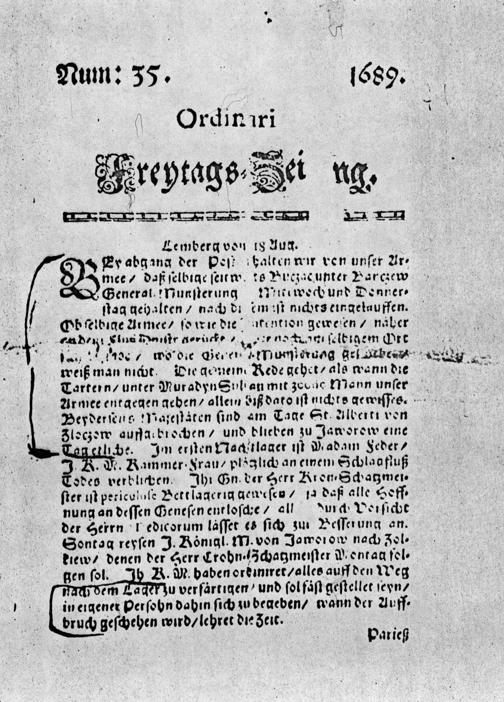 Num: 35. 1689.
Ordinari
Freytags-Zei ng.
Lemberg von 18 Aug.
BEy abgang der Post halten wir von unser Ar-
mee / daß selbige seit unter Barczew
General Munsterung Mittwoch und Donner-
stag gehalten / nach dem ist nichts eingelauffen.
Ob selbige Armee / so wie die intention gewesen / näher
an dem gerückt / selbigem Ort
wo die Munsterung
weiß man nicht. Die gemein Rede gehet / als wann die
Tartern / unter Muradyn Sultan mit Mann unser
Armee entgegen gehen / allein biß dato ist nichts gewisses.
Beyderseits Majestäten sind am Tage St. Alberti von
Zloczow auffgebrochen / und blieben zu Jaworow eine
Tag etliche. Im ersten Nachtlager ist Madam Feder /
J. K. M. Kammer-Frau / plötzlich an einem Schlagfluß
Todes verblichen. Ihr Gn. der Herr Kron-Schatzmei-
ster ist periculose Bettlagerig gewesen / ja daß alle Hoff-
nung an dessen Genesen entlosche / all Durch Vorsicht
der Herrn Medicorum lässet es sich zur Besserung an.
Sontag reysen J. Königl. M. von Jaworow nach Zol-
kiew / denen der Herr Crohn-Schatzmeister Montag fol-
gen sol. Ih. K. M. haben ordiniret / alles auff den Weg
nach dem Lager zu verfärtigen / und sol fäst gestellet seyn /
in eigener Persohn dahin sich zu begeben / wann der Auff-
bruch geschehen wird / lehret die Zeit.
Pariß